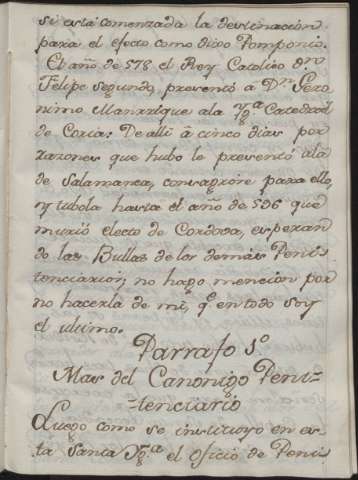 si está comenzada la destinacion
para el efecto como dixo Pomponio.
El año de 578 el Rey Catolico Dn
Felipe Segundo, presentó a Dn. Gero
nimo Manrrique ala Ygª Catedral
de Coria: De alli â cinco dias por
razones que hubo le presentó ala
de Salamanca, consagróse para ello,
y tubola hasta el año de 596 que
murió electo de Cordova, esperan
do las Bullas de los demás Peni
tenciarios, no hago mencion por
no hacerla de mí, qe en todo soy
el ultimo.
Parrafo 5º
Mas del Canonigo Peni-
-tenciario
Luego como se instituyo en es
ta Santa Ygª el oficio de Peni